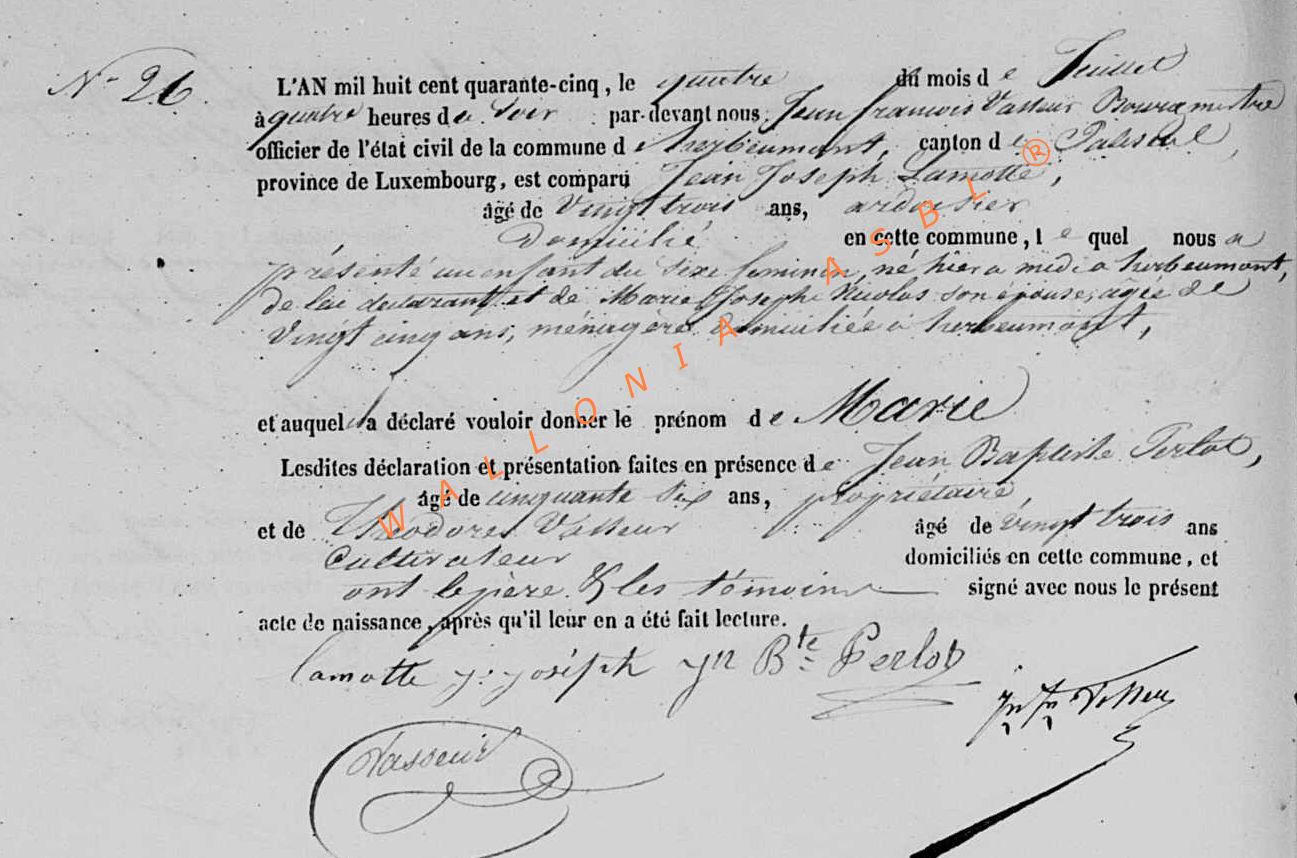 N° 26.
L'AN mil huit cent quarante-cinq, le quatre du mois de Juillet
à quatre heures du Soir par-devant nous Jean francois Vasseur Bourgmestre
officier de l'état civil de la commune d'herbeumont, canton de Paliseul,
province de Luxembourg, est comparu Jean Joseph Lamotte,
âgé de Vingt trois ans, ardoisier
Domicilié en cette commune, le quel nous a
présenté un enfant du Sexe feminin, né hier a midi a herbeumont,
de lui declarant et de Marie Joseph Nicolas son épouse, agée de
Vingt cinq ans, ménagère domiciliée a herbeumont,
et auquel il a déclaré vouloir donner le prénom de Marie
Lesdites déclaration et présentation faites en présence de Jean Baptiste Perlot,
âgé de cinquante six ans, propriétaire,
et de Théodore Vasseur âgé de vingt trois ans
Cultivateur domiciliés en cette commune, et
ont le père & les témoins signé avec nous le présent
acte de naissance, après qu'il leur en a été fait lecture.
lamotte j: joséph jn Bte Perlot
Vasseur
WALLONIA ASBL ®